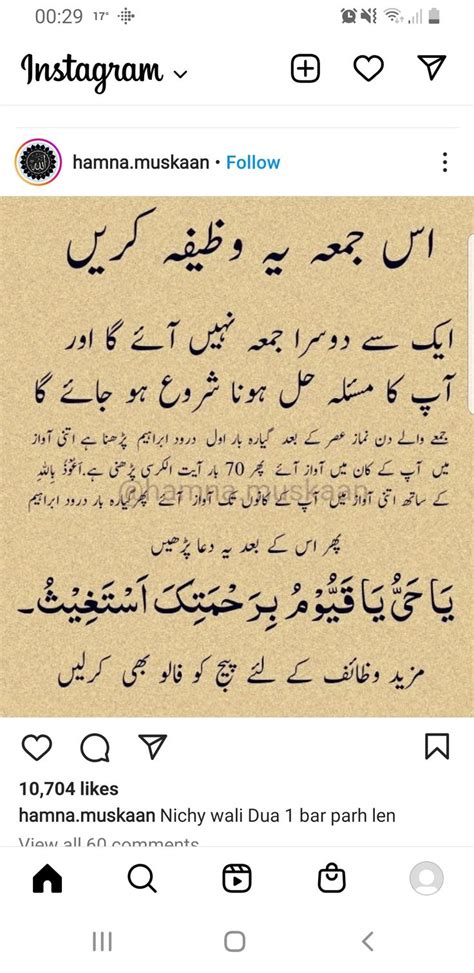 00:29 17°
Instagram
hamna.muskaan • Follow
اس جمعہ یہ وظیفہ کریں
ایک سے دوسرا جمعہ نہیں آئے گا اور
آپ کا مسئلہ حل ہونا شروع ہو جائے گا
جمعے والے دن نماز عصر کے بعد گیارہ بار اول درود ابراہیم پڑھنا ہے اتنی آواز
میں آپ کے کان میں آواز آئے پھر 70 بار آیت الکرسی پڑھنی ہے.اَعُوْذُ بِاللّٰهِ
@hamna.muskaan
کے ساتھ اتنی آواز میں آپ کے کانوں تک آواز آئے پھر گیارہ بار درود ابراہیم
پھر اس کے بعد یہ دعا پڑھیں
يَا حَيُّ يَا قَيُّوْمُ بِرَحْمَتِكَ اَسْتَغِيْثُ۔
مزید وظائف کے لئے پیج کو فالو بھی کرلیں
10,704 likes
hamna.muskaan Nichy wali Dua 1 bar parh len
View all 60 comments